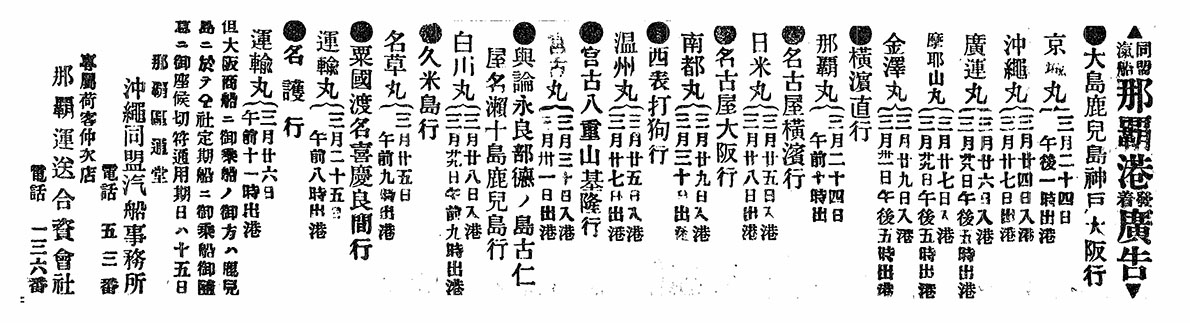 ▲同盟滊船那覇港發着廣告▼
●大島鹿兒島神戸大阪行
京城丸 三月二十四日午後一時出港
沖繩丸 三月廿四日入港 三月廿七日出港
廣運丸 三月廿六日入港 三月廿九日午後五時出港
摩耶山丸 三月廿九日午後五時出港
金澤丸 三月廿九日入港 三月卅一日午後五時出港
●横濱直行
那覇丸 三月二十四日午前十時出
●名古屋横濱行
日米丸 三月廿五日入港 三月廿八日出港
●名古屋大阪行
南都丸 三月廿九日入港 三月三十日出發
●西表打狗行
温州丸 三月廿五日入港 三月廿七日出港
●宮古八重山基隆行
宮古丸 三月卅三日入港 三月卅一日出港
●與論永良部德ノ島古仁
屋名瀬十島鹿兒島行
白川丸 三月廿八日入港 三月廿九日午前九時出港
●久米島行
名草丸 三月廿五日午前時出港
●粟國渡名喜慶良間行
運輸丸 三月二十五日午前八時出港
●名護行
運輸丸 三月廿六日午前十一時出港
但大阪商船ニ御乘船ノ御方ハ鹿兒
島ニ於テ仝社定期船ニ御乘船御隨
意ニ御座候切符通用期日ハ十五日
那覇區通堂
沖繩同盟汽船事務所
電話 五三番
專屬荷客仲次店
那覇運送合資會社
電話 一三六番